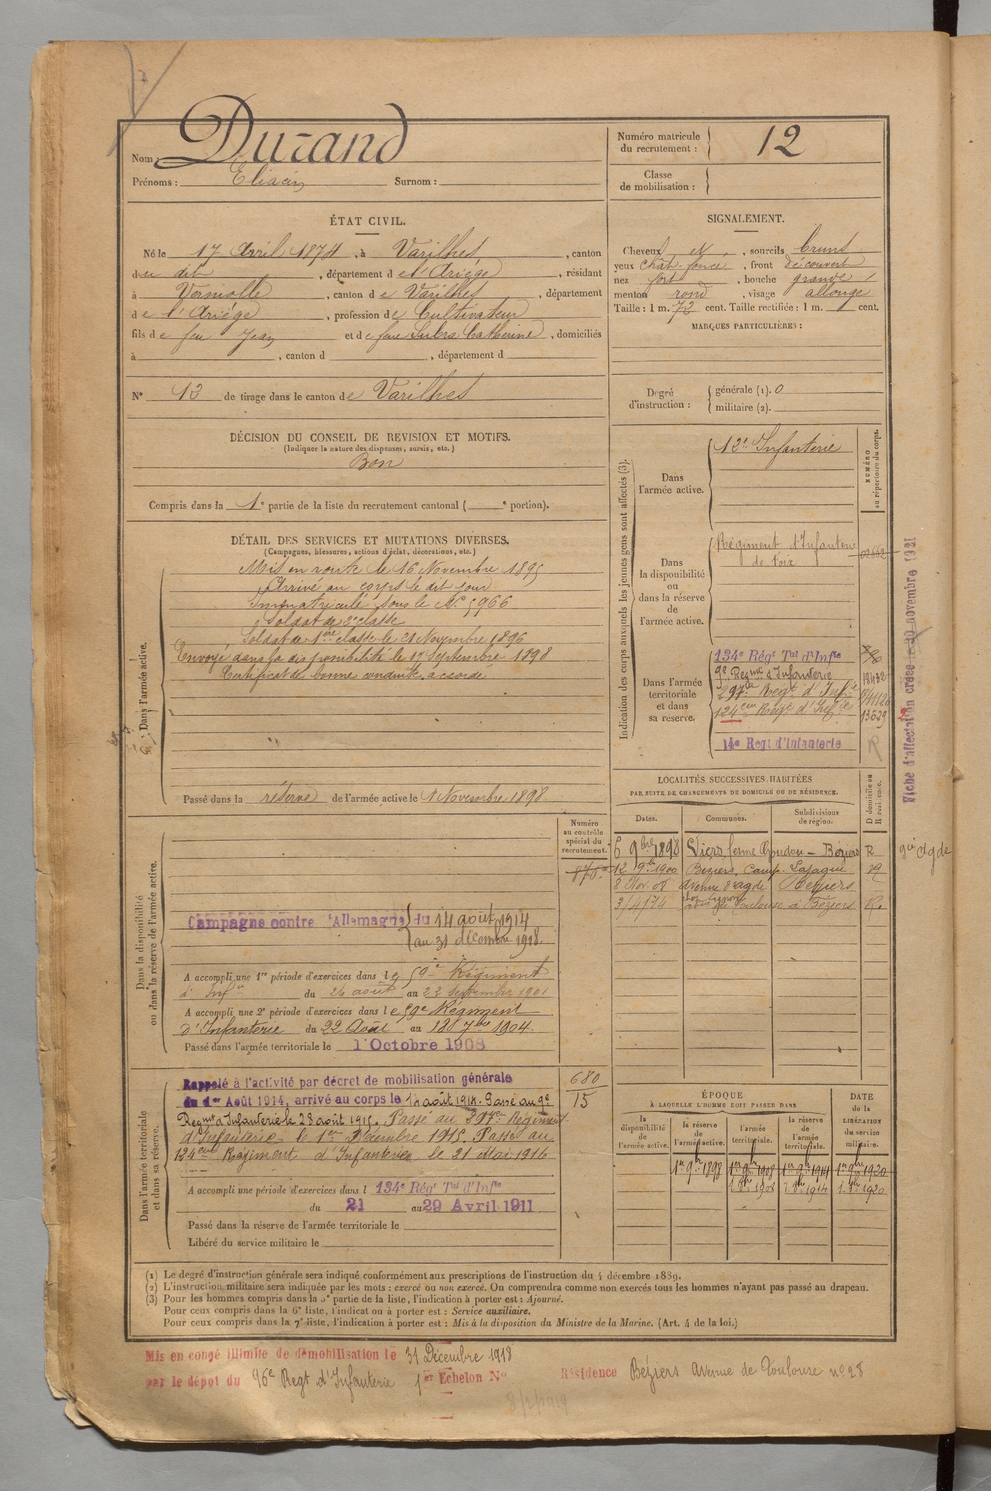 Nom : Durand
Prénoms : Eliacin Surnom :
Numéro matricule du recrutement : 12
Classe de mobilisation :
ÉTAT CIVIL.
Né le 17 Avril 1874, à Varilhes, canton
du dit, département de l'Ariége, résidant
à Verniolle, canton de Varilhes, département
de l'Ariége, profession de Cultivateur
fils de feu Jean et de feue Subra Catherine, domiciliés
à , canton d , département d
N° 13 de tirage dans le canton de Varilhes
SIGNALEMENT.
Cheveux et, sourcils bruns
yeux chat. foncé, front découvert
nez fort, bouche grande
menton rond, visage allongé
Taille : 1 m. 72 cent. Taille rectifiée : 1 m. cent.
MARQUES PARTICULIÈRES :
Degré d'instruction : générale (1). 0
militaire (2).
DÉCISION DU CONSEIL DE REVISION ET MOTIFS.
(Indiquer la nature des dispenses, sursis, etc.)
Bon
Compris dans la 1e partie de la liste du recrutement cantonal ( e portion).
DÉTAIL DES SERVICES ET MUTATIONS DIVERSES.
(Campagnes, blessures, actions d'éclat, décorations, etc.)
Dans l'armée active.
Mis en route le 16 Novembre 1895
Arrivé au corps le dit jour
Immatriculé sous le N° 5966
Soldat de 2e classe
Soldat de 1ère classe le 21 Novembre 1896
Envoyé dans la disponibilité le 17 Septembre 1898
Certificat de bonne conduite accordé
Passé dans la réserve de l'armée active le 1 Novembre 1898
Indication des corps auxquels les jeunes gens sont affectés (3).
NUMÉRO au répertoire du corps.
Dans l'armée active.
12e Infanterie
Dans la disponibilité ou dans la réserve de l'armée active.
Régiment d'Infanterie
de Foix
Dans l'armée territoriale et dans sa réserve.
134e Régt Tal d'Infie
9e Regmt d'Infanterie
297e Regt d'Infie
124eme Regt d'Infie 13629
14e Regt d'Infanterie R
Fiche d'affectation créée le 30 novembre 1921
LOCALITÉS SUCCESSIVES HABITÉES
PAR SUITE DE CHANGEMENTS DE DOMICILE OU DE RÉSIDENCE.
Dates. Communes. Subdivisions de région. D domicile ou R résidence.
6 9bre 1898 Béziers R
12 9bre 1900 Beziers, Camp. R
8 Nov. 08 Avenue d'Agde Beziers
3/4/14 de Toulouse à Béziers R.
Dans la disponibilité ou dans la réserve de l'armée active.
Numéro au contrôle spécial du recrutement.
870
Campagne contre l'Allemagne du 14 août 1914
au 31 décembre 1918.
A accompli une 1re période d'exercices dans le 59e Régiment
d'Infie du 26 août au 22 Septembre 1901
A accompli une 2e période d'exercices dans le 59e Régiment
d'Infanterie du 22 Août au 18 7bre 1904.
Passé dans l'armée territoriale le 1 Octobre 1908
Dans l'armée territoriale et dans sa réserve.
680
15
Rappelé à l'activité par décret de mobilisation générale
du 1er Août 1914, arrivé au corps le 14 août 1914. Passé au 9e
Regmt d'Infanterie le 28 août 1915. Passé au 297eme Régiment
d'Infanterie le 1er Décembre 1915. Passé au
124eme Régiment d'Infanterie le 21 Mai 1916
A accompli une période d'exercices dans l 134e Régt Tal d'Infie
du 21 au 29 Avril 1911
Passé dans la réserve de l'armée territoriale le
Libéré du service militaire le
ÉPOQUE
À LAQUELLE L'HOMME DOIT PASSER DANS
la disponibilité de l'armée active.
la réserve de l'armée active.
l'armée territoriale.
la réserve de l'armée territoriale.
DATE de la LIBÉRATION du service militaire.
1er 9bre 1898
(1) Le degré d'instruction générale sera indiqué conformément aux prescriptions de l'instruction du 4 décembre 1889.
(2) L'instruction militaire sera indiquée par les mots : exercé ou non exercé. On comprendra comme non exercés tous les hommes n'ayant pas passé au drapeau.
(3) Pour les hommes compris dans la 5e partie de la liste, l'indication à porter est : Ajourné.
Pour ceux compris dans la 6e liste, l'indication à porter est : Service auxiliaire.
Pour ceux compris dans la 7e liste, l'indication à porter est : Mis à la disposition du Ministre de la Marine. (Art. 4 de la loi.)
Mis en congé illimité de démobilisation le 31 Décembre 1918
par le dépôt du 96e Regt d'Infanterie 1er Echelon N° Résidence Béziers Avenue de Toulouse n° 28